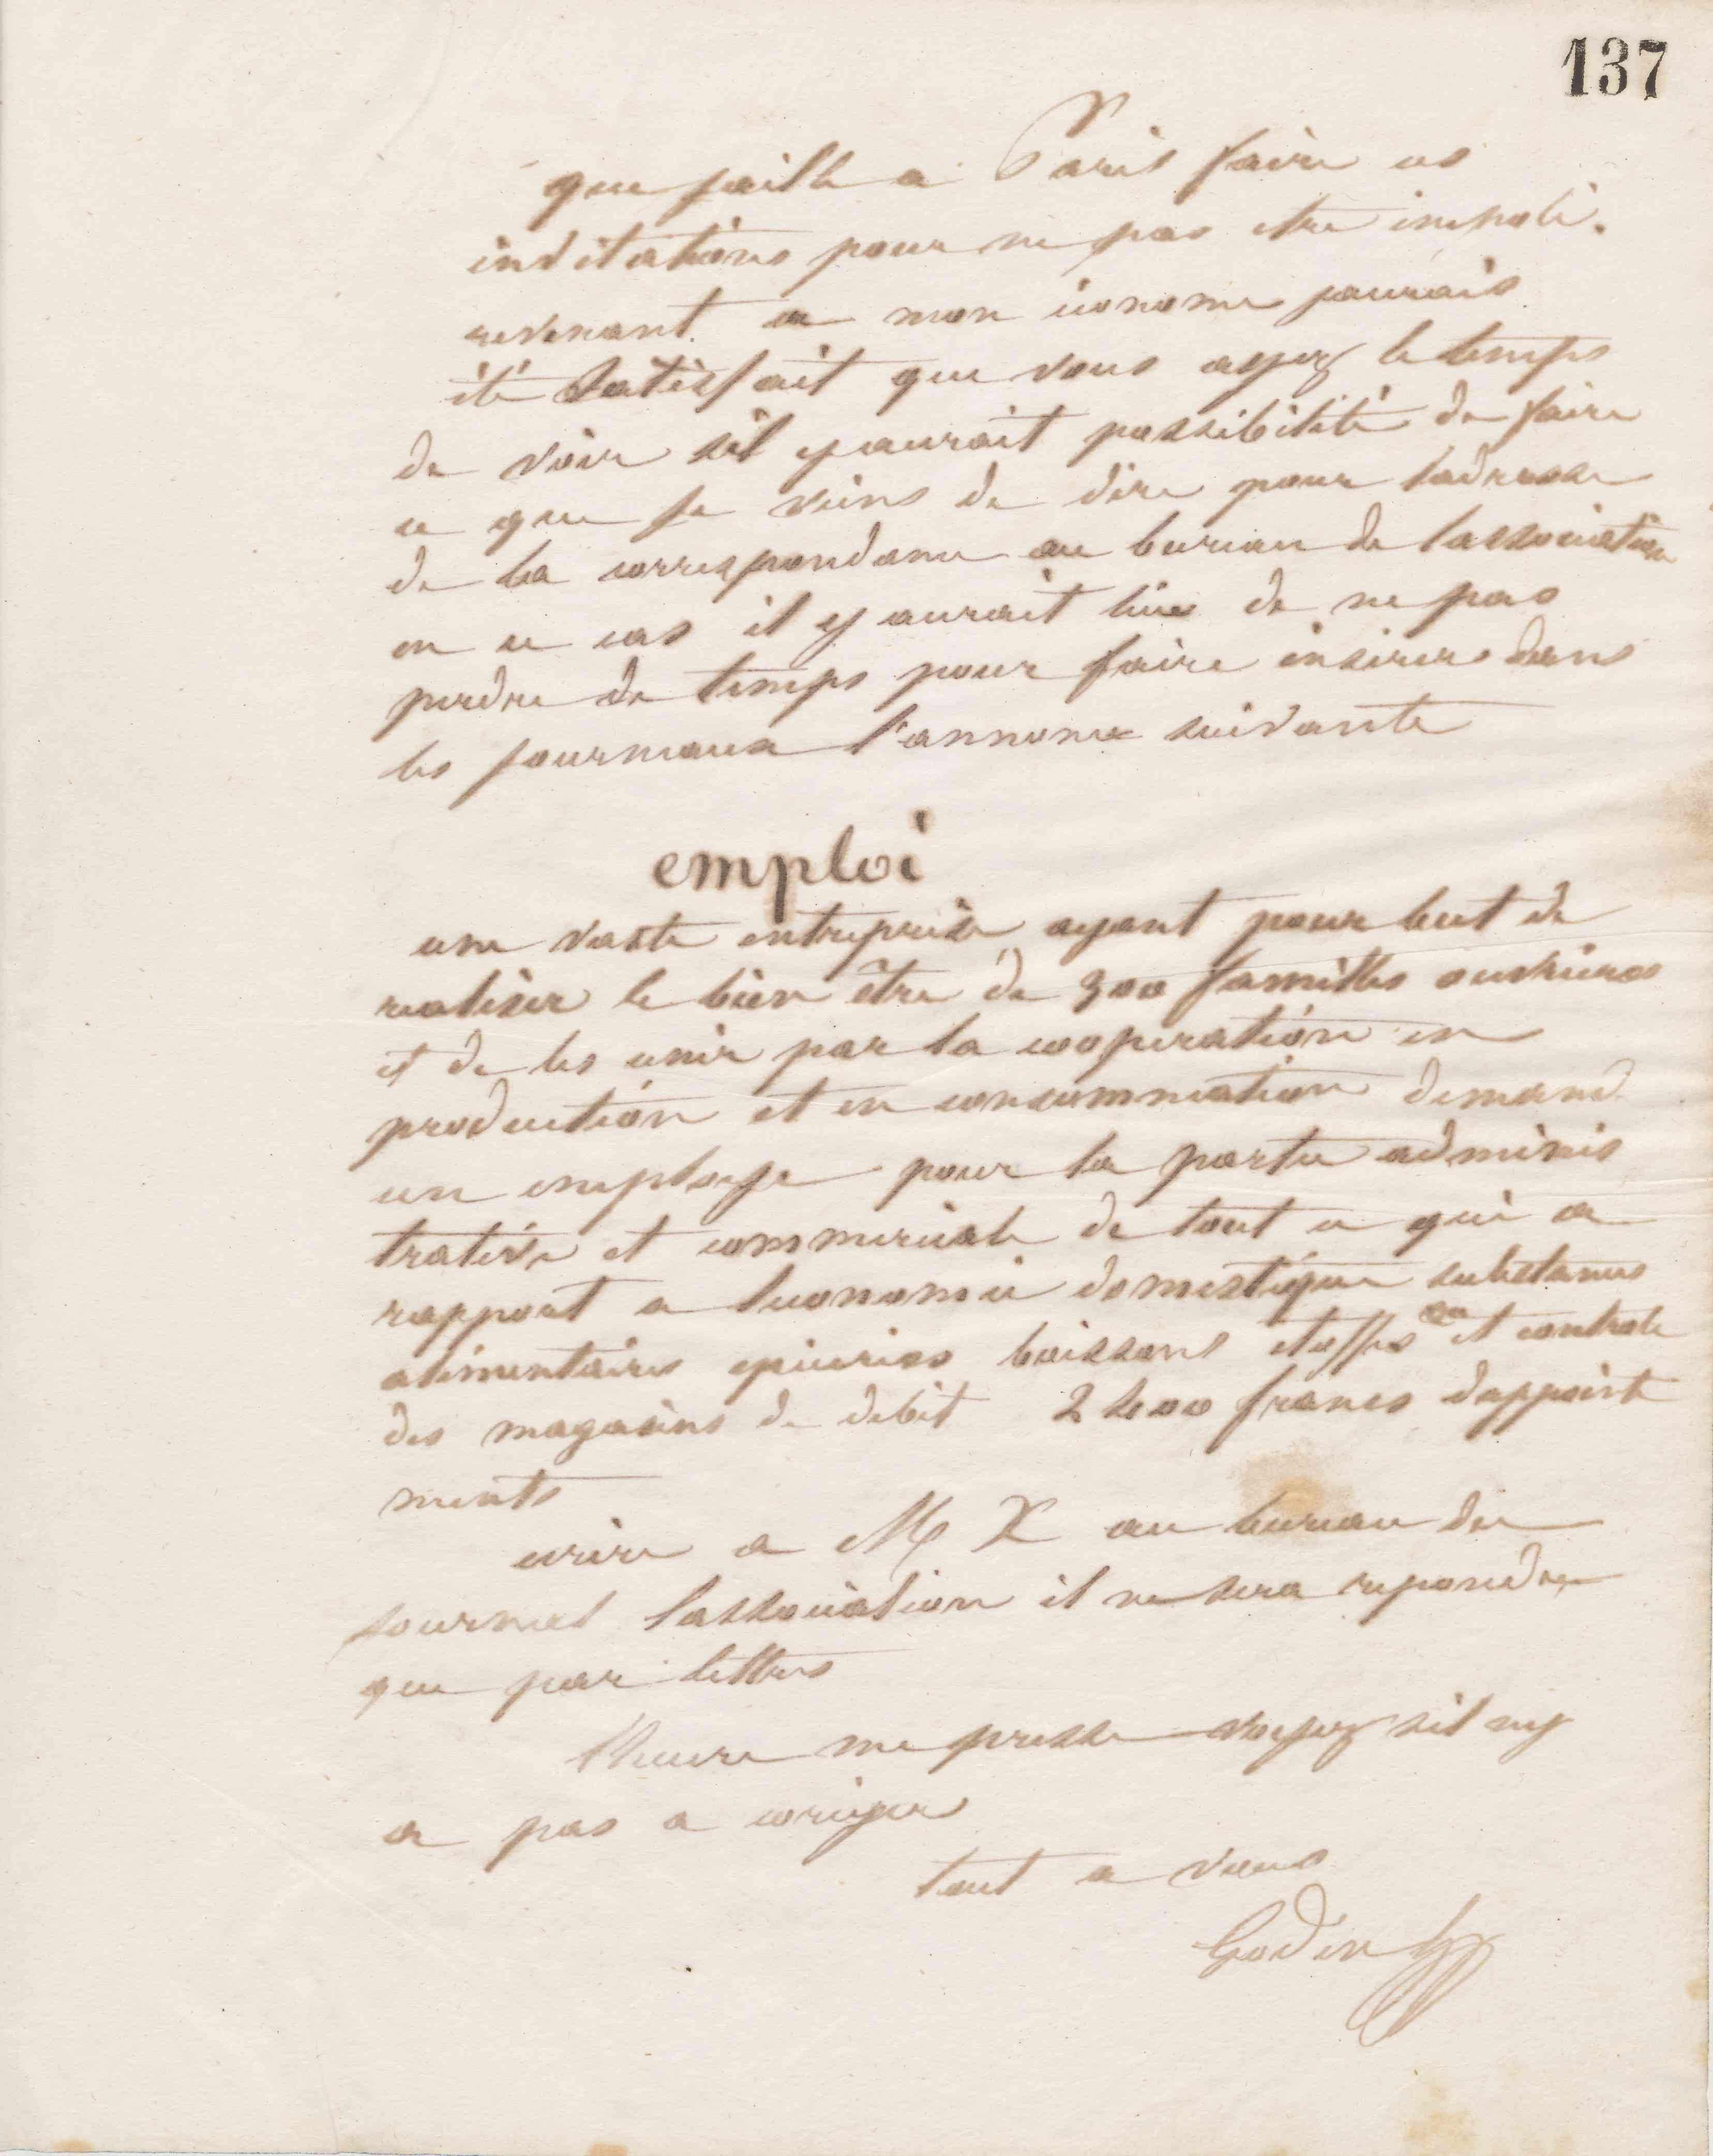 137
que jaille a Paris faire ces
invitations pour ne pas etre impoli.
revenant a mon économe jaurais
été satisfait que vous ayez le temps
de voir sil y aurait possibilité de faire
ce que je viens de dire pour ladresse
de la correspondance au bureau de lassociation
en ce cas il y aurait lieu de ne pas
perdre de temps pour faire inserer dans
les journaux l'annonce suivante
emploi
une vaste entreprise ayant pour but de
realiser le bien être de 300 familles ouvrieres
et de les unir par la cooperation en
production et en consommation demand
un employe pour la partie adminis
trative et commerciale de tout ce qui a
rapport a leconomie domestique substances
alimentaires epiceries boissons etoffes et controle
des magasins de debit 2400 francs dappointe
ments
ecrire a M X au bureau du
journal lassociation il ne sera repondu
que par lettres
lheure me presse voyez sil ny
a pas a coriger
tout a vous
Godin